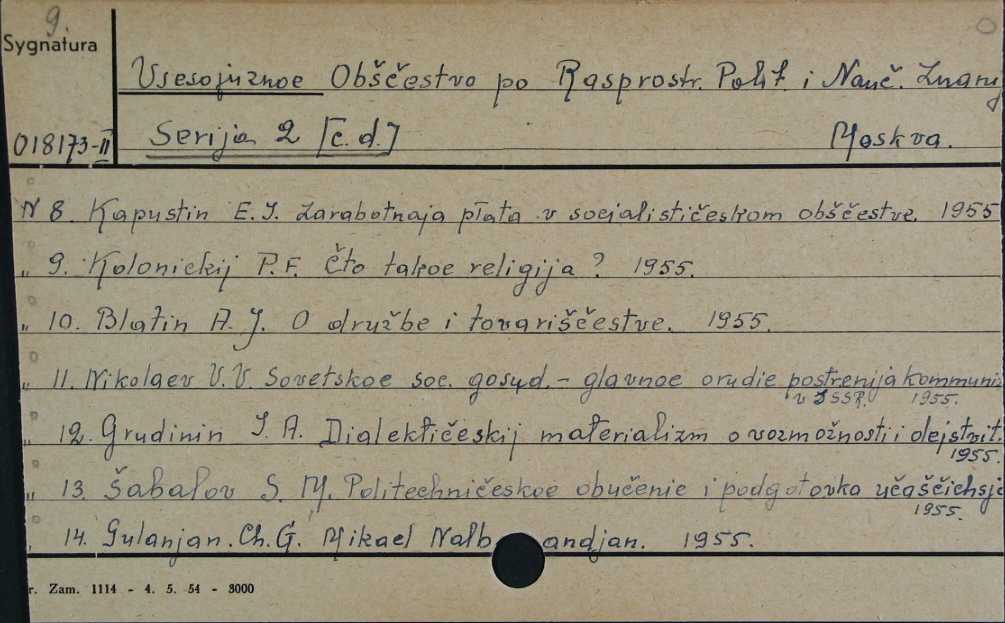 9.
Sygnatura
Vsesojuznoe Obščestvo po Rasprostr. Polit. i Nauč. Znanij
018173-II
Serija 2 [c.d.]
Moskva.
N 8. Kapustin E. I. Zarabotnaja płata v socjalističeskom obščestve. 1955
„ 9. Kolonickij P. F. Čto takoe religija? 1955.
„ 10. Blatin A. J. O družbe i tovariščestve. 1955.
„ 11. Nikolaev V. V. Sovetskoe soc. gosud. – glavnoe orudie postrenija kommuni
v SSSR. 1955.
„ 12. Grudinin I. A. Dialektičeskij materializm o vozmožnosti i dejstvit.
1955.
„ 13. Šabalov S. M. Politechničeskoe obučenie i podgotovka učaščichsja
1955.
„ 14. Gulanjan. Ch. G. Mikael Nalb andjan. 1955.
r. Zam. 1114 - 4. 5. 54 - 3000